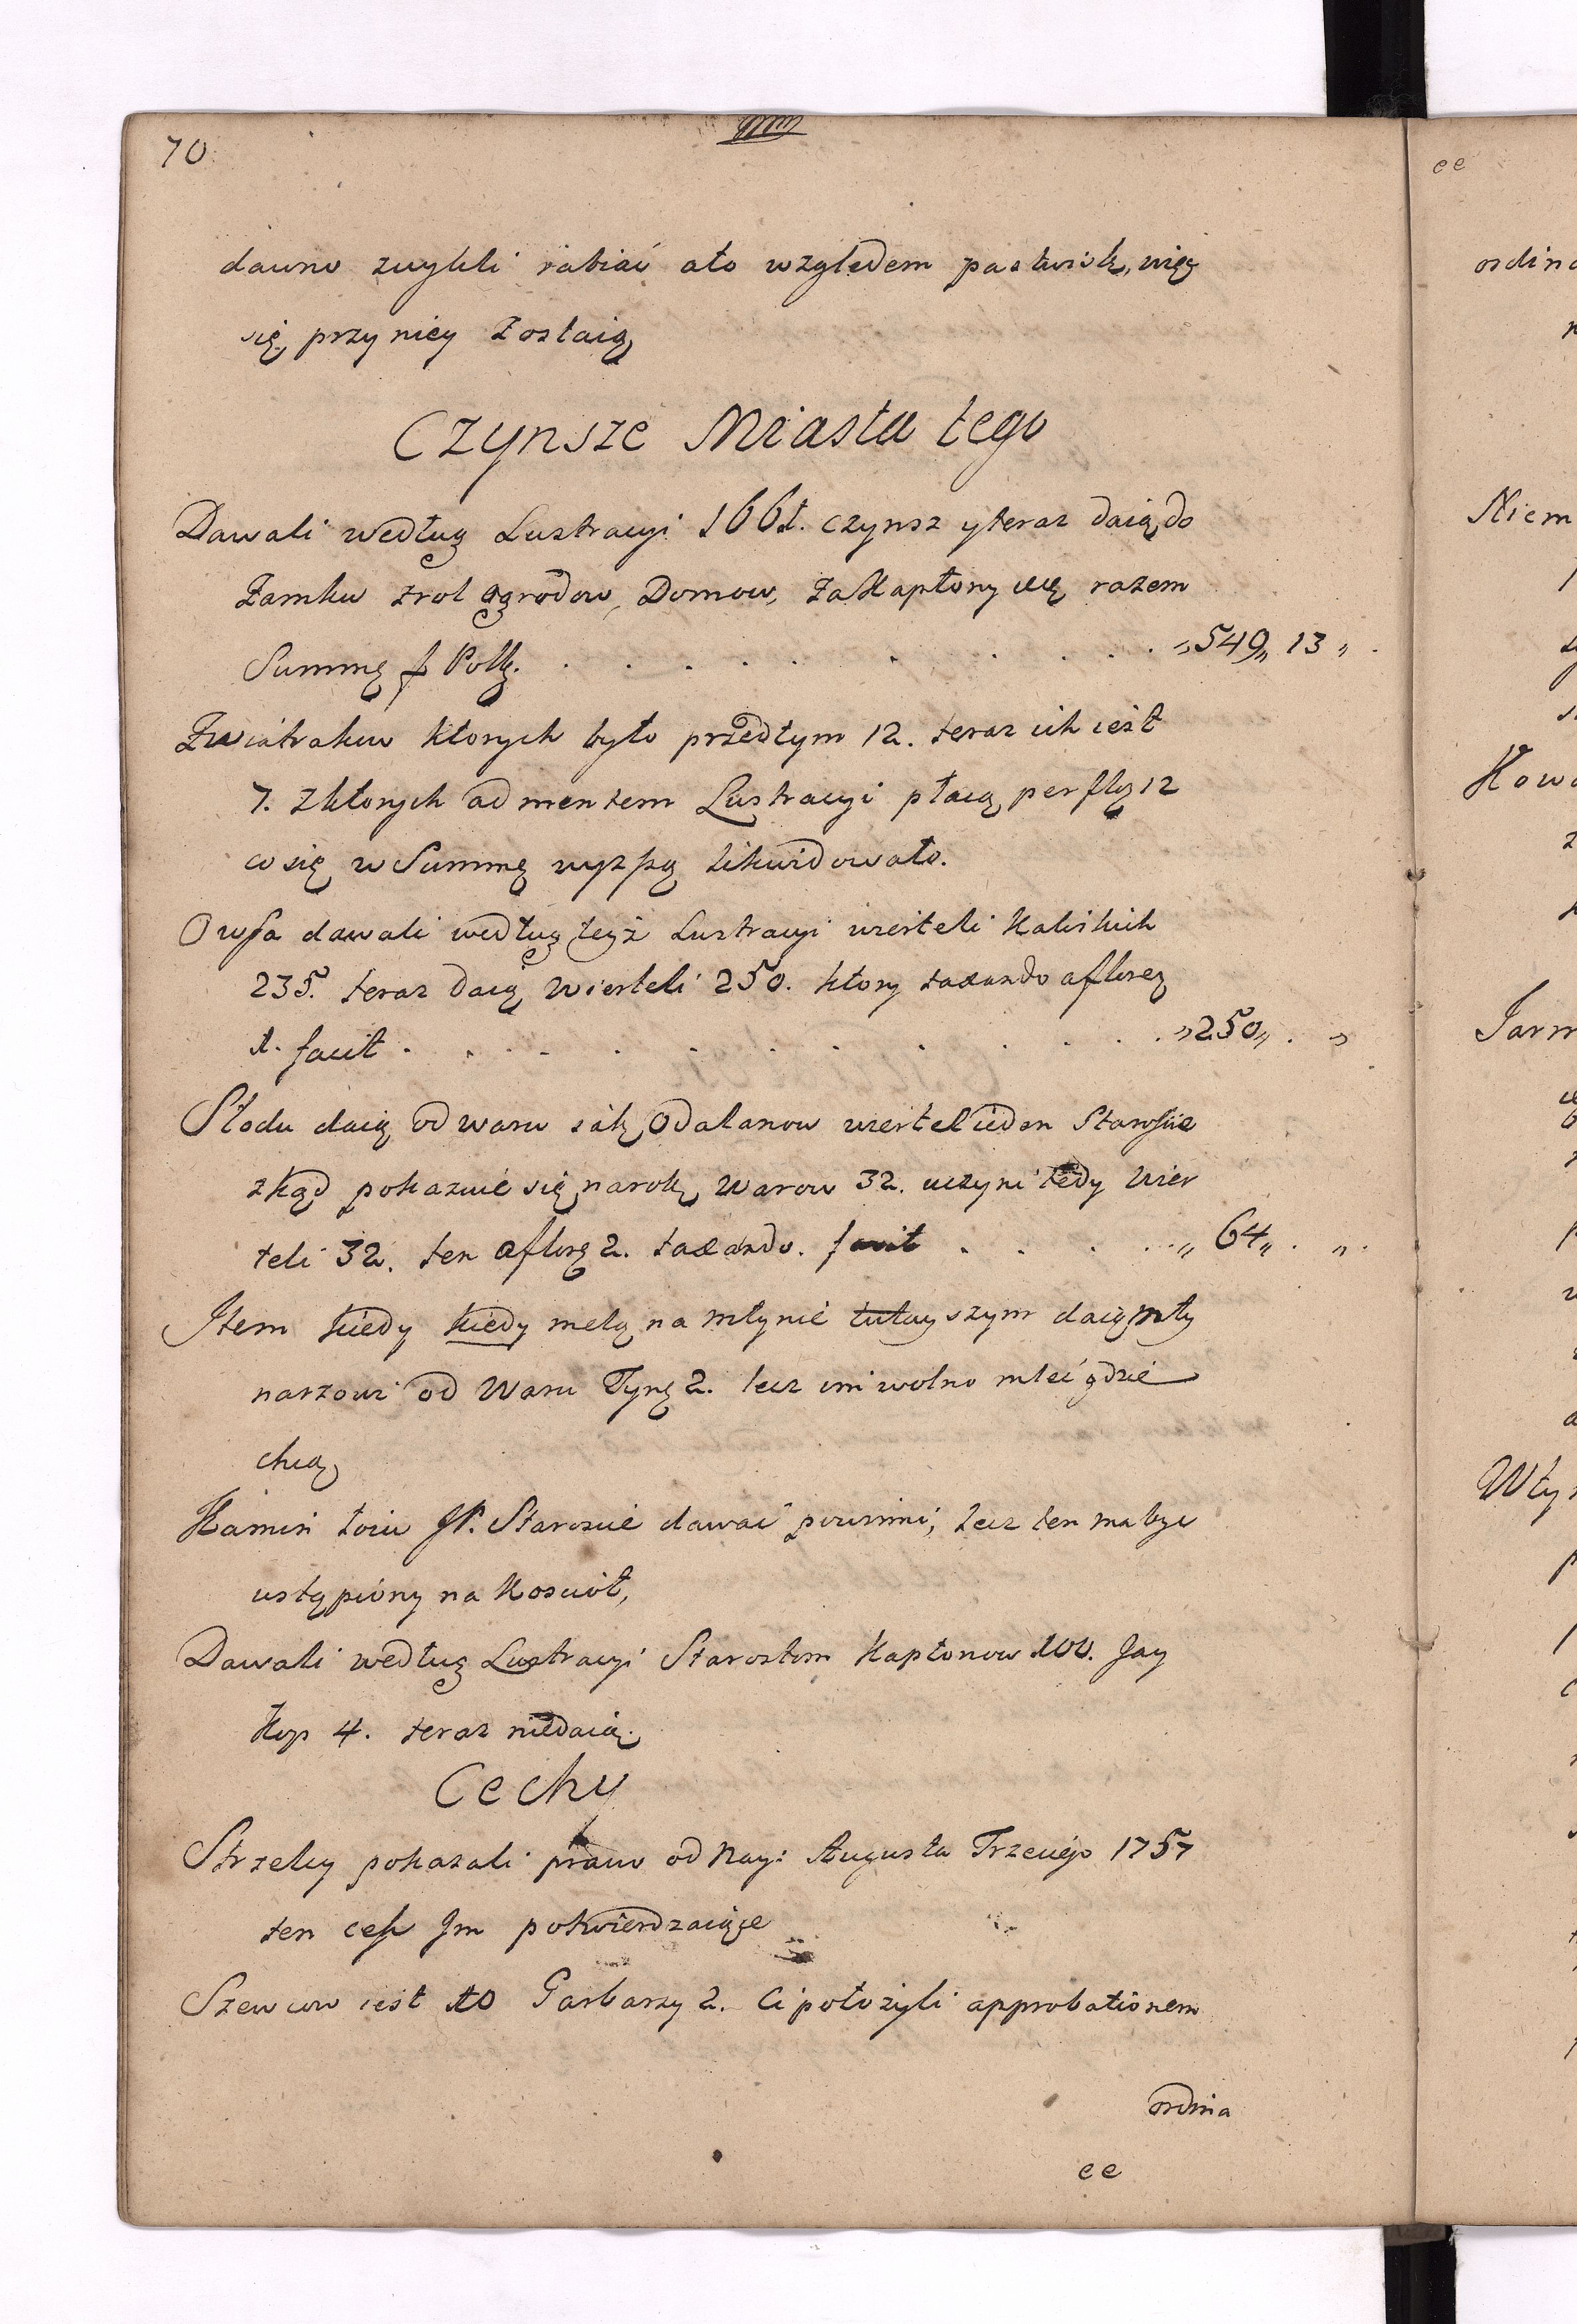 70
dawno zwykli rabiać ato względem pastwisk, więc
się przy niey zostaią
Czynsze Miasta tego
Dawali według Lustracyi 1661. czynsz y teraz daią do
Zamku z rol ogrodow, Domow, za Kapłony etc razem
Summę f Polk. . . . . . . . . . . „549„ 13 „ .
Zwiatrakow ktorych było przedtym 12. teraz ich iest
7. z ktorych ad mentem Lustracyi płacą per flo 12
co się w Summę wyższą likwidowało.
Owsa dawali według teyż Lustracyi wierteli Kaliskich
235. teraz daią wierteli 250. ktory taxando a floreg
1. facit . . . . . . . . . . . . „250„ . „
Słodu daią od waru iak Odalanow wiertel ieden Staroście
zkąd pokazuie się na rok warow 32. uczyni tedy wier
teli 32. ten a floreg 2. taxando. facit . . . . . „ 64„ . „ .
Item kiedy kiedy melą na młynie tutayszym daią mły
narzowi od Waru Tynf 2. lecz im wolno mleć gdzie
chcą
Kamień łoiu JP. Starościе dawać powinni, lecz ten ma być
ustąpiony na Kościoł,
Dawali według Lustracyi Starostom Kapłonow 100. Jay
Kop 4. teraz niedaią.
Cechy
Strzelcy pokazali prawo od Nay: Augusta Trzeciego 1757
ten cech Jm potwierdzaiące
Szewcow iest 10 Garbarzy 2. Ci położyli approbationem
ordina
ee
ee
ordina
Niem
Kowa
Jarm
Młyn